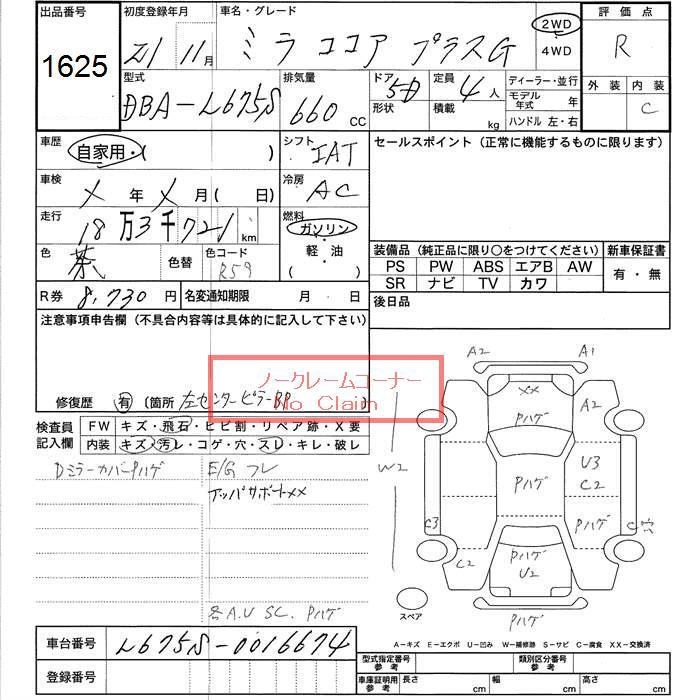 出品番号
1625
初度登録年月
21 11月
車名・グレード
ミラ ココア プラスG
2WD
4WD
評価点
R
外装 内装
C
型式
DBA-L675S
排気量
660 CC
ドア 形状
5D
定員 4 人
積載 kg
ディーラー・並行
モデル年式 年
ハンドル 左・右
車歴
自家用・( )
シフト
IAT
セールスポイント（正常に機能するものに限ります）
車検
X 年 X 月( 日)
冷房
AC
走行
18万3千721 km
燃料
ガソリン
軽・油
( )
色
茶
色替
色コード
R59
装備品（純正品に限り○をつけてください）
PS PW ABS エアB AW
SR ナビ TV カワ
新車保証書
有・無
R券 8,730 円
名変通知期限 月 日
後日品
注意事項申告欄（不具合内容等は具体的に記入して下さい）
ノークレームコーナー
No Claim
修復歴 有 〔箇所 左センターピラーBP 〕
検査員記入欄
FW キズ・飛石・ヒビ割・リペア跡・X要
内装 キズ・汚レ・コゲ・穴・スレ・キレ・破レ
DミラーカバーPハゲ
E/G フレ
アッパサポートXX
各A.U SC. Pハゲ
A2 A1
XX
Pハゲ
A2
W2
Pハゲ
U3
C2
C3
Pハゲ
C穴
C2
Pハゲ
U2
スペア
Pハゲ
A-キズ E-エクボ U-凹み W-補修跡 S-サビ C-腐食 XX-交換済
車台番号
L675S-0016674
登録番号
型式指定番号参考
類別区分番号参考
車庫証明用参考
長さ cm
幅 cm
高さ cm